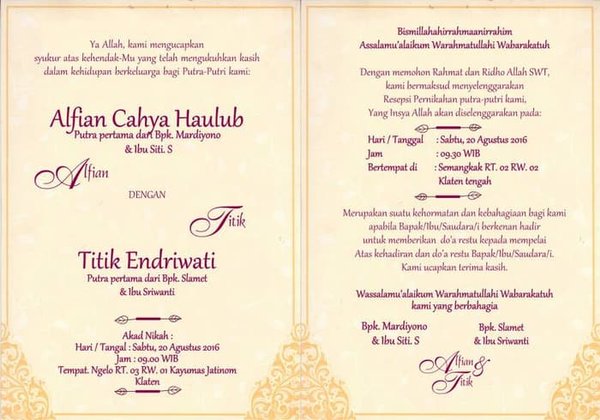 Ya Allah, kami mengucapkan
syukur atas kehendak-Mu yang telah mengukuhkan kasih
dalam kehidupan berkeluarga bagi Putra-Putri kami:
Alfian Cahya Haulub
Putra pertama dari Bpk. Mardiyono
& Ibu Siti. S
Alfian
DENGAN
Titik
Titik Endriwati
Putra pertama dari Bpk. Slamet
& Ibu Sriwanti
Akad Nikah :
Hari / Tanggal : Sabtu, 20 Agustus 2016
Jam : 09.00 WIB
Tempat. Ngelo RT. 03 RW. 01 Kayumas Jatinom
Klaten
Bismillahahirrahmaanirrahim
Assalamu'alaikum Warahmatullahi Wabarakatuh
Dengan memohon Rahmat dan Ridho Allah SWT,
kami bermaksud menyelenggarakan
Resepsi Pernikahan putra-putri kami,
Yang Insya Allah akan diselenggarakan pada:
Hari / Tanggal : Sabtu, 20 Agustus 2016
Jam : 09.30 WIB
Bertempat di : Semangkak RT. 02 RW. 02
Klaten tengah
Merupakan suatu kehormatan dan kebahagiaan bagi kami
apabila Bapak/Ibu/Saudara/i berkenan hadir
untuk memberikan do'a restu kepada mempelai
Atas kehadiran dan do'a restu Bapak/Ibu/Saudara/i.
Kami ucapkan terima kasih.
Wassalamu'alaikum Warahmatullahi Wabarakatuh
kami yang berbahagia
Bpk. Mardiyono Bpk. Slamet
& Ibu Siti. S & Ibu Sriwanti
Alfian &
Titik